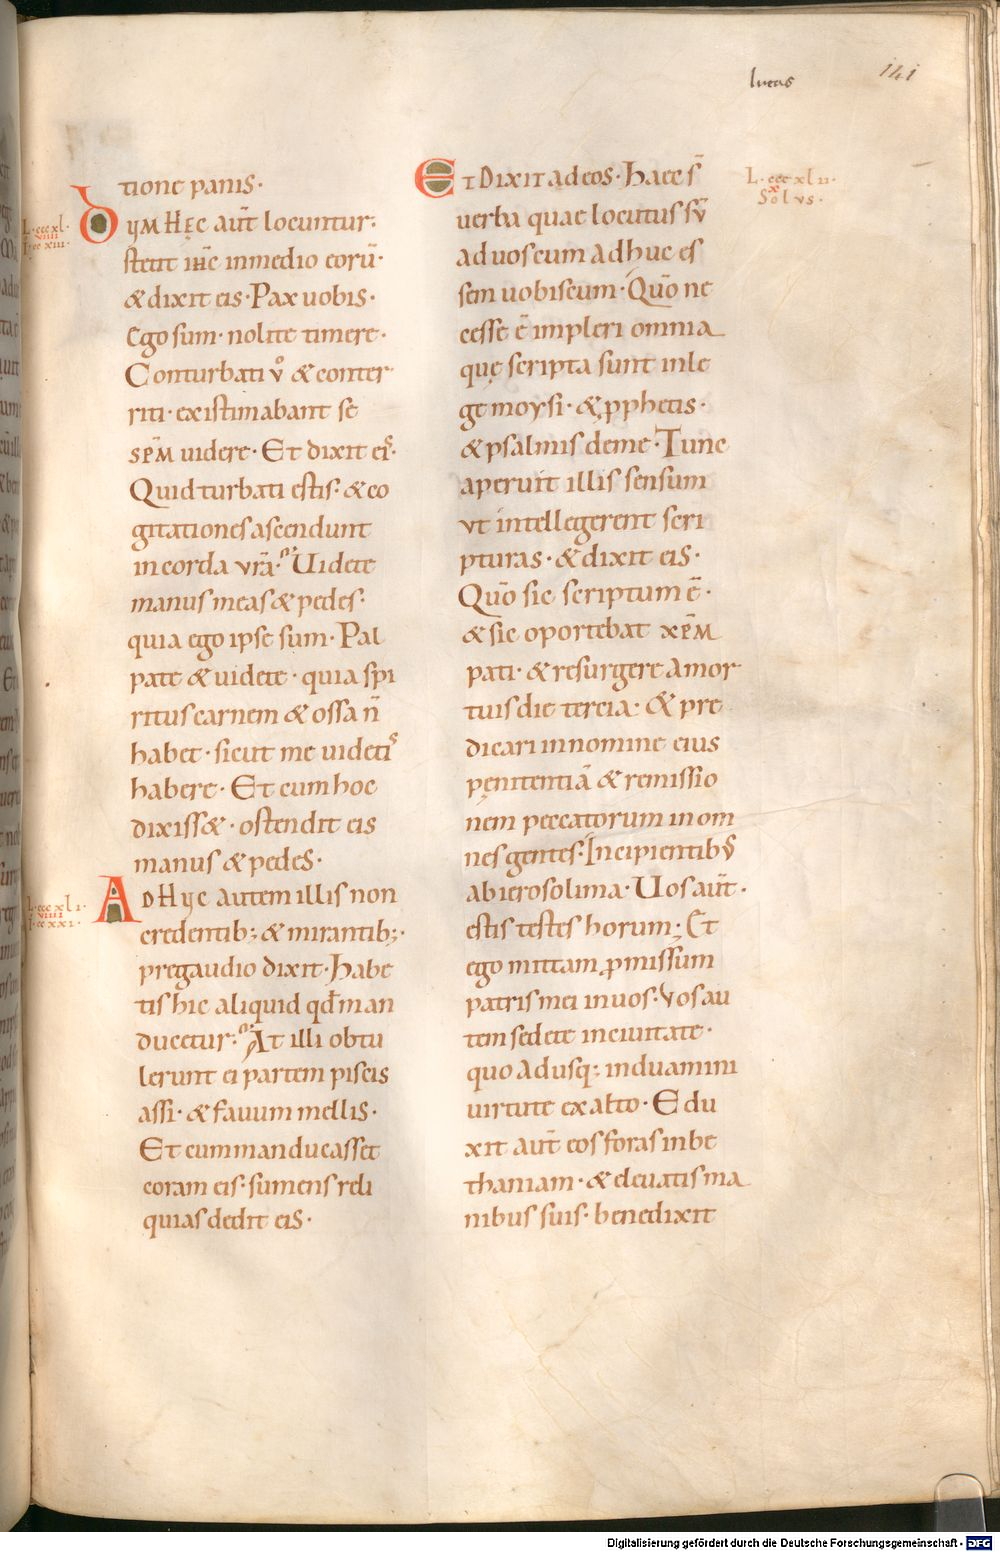 lucas
141
tione panis·
DUM HEC aut̄ locuntur·
L·cccxl·
viiii
I·ccxiii·
stetit ih̄c inmedio eorū·
& dixit eis· Pax uobis·
Ego sum· nolite timere·
Conturbati v̊ & conter
riti· existimabant se
sp̄m uidere· Et dixit eis·
Quid turbati estis· & co
gitationes ascendunt
incorda vr̄a· Uidete
manus meas & pedes·
quia ego ipse sum· Pal
pate & uidete· quia spi
ritus carnem & ossa n̄
habet· sicut me uidetis
habere· Et cum hoc
dixiss&· ostendit eis
manus & pedes·
ADHUC autem illis non
L·cccxli·
viiii
I·ccxxi·
credentib; & mirantib;·
pregaudio dixit· Habe
tis hic aliquid qd̄ man
ducetur· At illi obtu
lerunt ei partem piscis
assi· & fauum mellis·
Et cum manducasset
coram eis· sumens reli
quias dedit eis·
ET Dixit ad eos· Haec s̄
L·cccxlii·
x
Solus·
uerba quae locutus sū
ad uos cum adhuc es
sem uobiscum· Quō ne
cesse ē impleri omnia
quę scripta sunt in le
ge moysi· & ꝓphetis·
& psalmis de me· Tunc
aperuit illis sensum
vt intellegerent scri
pturas· & dixit eis·
Quō sic scriptum ē·
& sic oportebat xp̄m
pati· & resurgere amor
tuis die tercia· & pre
dicari innomine eius
pęnitentiā & remissio
nem peccatorum in om
nes gentes· Incipientibus
ab ierosolima· Uos aut̄·
estis testes horum; Et
ego mittam ꝓmissum
patris mei in uos· Vos au
tem sedete in ciuitate·
quo adusq; induamini
uirtute ex alto· Edu
xit aut̄ eos foras in be
thaniam· & eleuatis ma
nibus suis· benedixit
Digitalisierung gefördert durch die Deutsche Forschungsgemeinschaft - DFG